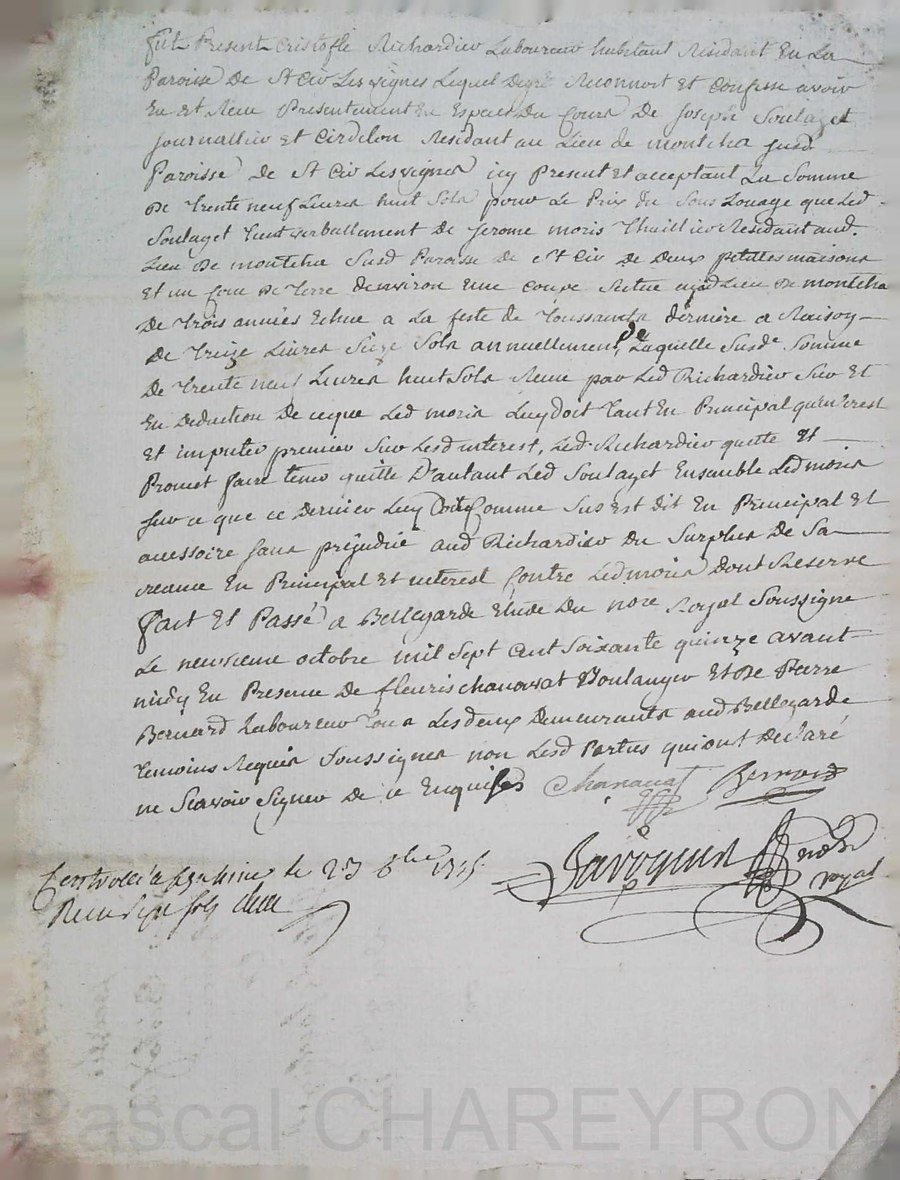 fut Present Cristofle Richardier Laboureur habitant Residant En La
Paroisse De St Cir Les vignes Lequel Degré Reconnoit Et Confesse avoir
Eu et Receu Presentement En Especes Du Cours De Joseph Soulaget
Journallier et Cirdelon Residant au Lieu de montcha susd
Paroisse De St Cir Lesvignes icy Present et acceptant La Somme
De trente neuf Livres huit Sols pour Le Prix du Sous Louage que Led
Soulaget tient verballement De Jerome moris thuillier Residant aud
Lieu De montcha Susd Paroisse De St Cir De Deux petittes maisons
Et un Coin De terre Denviron une Coupe Scitué aud Lieu De montcha
De trois années Echue a La feste de toussaints derniere a Raison
De treize Livres Seize Sols annuellement, De Laquelle Susde Somme
De trente neuf Livres huit Sols Receue par Led Richardier Sur Et
En Deduction De ceque Led moris Luy doit tant En Principal qu'interest
Et imputé premier Sur Lesd interest, Led Richardier quitte Et
Promet faire tenir quitte D'autant Led Soulaget Ensemble Led moris
Sur ce que ce Dernier Luy Doit Comme Sus est dit En Principal Et
accessoire sans prejudice aud Richardier Du Surplus De Sa
creance En Principal Et interest Contre Led moris Dont Reserve
fait Et Passé a Bellegarde Etude Du nore Royal Soussigne
Le neuvieme octobre mil Sept Cent Soixante quinze avant
midy En Presence De fleuris chanavat Boulanger Et De Pierre
Bernard Laboureur tous Lesdeux Demeurants aud Bellegarde
temoins Requis Soussignes non Lesd Parties qui ont Declaré
ne Scavoir Signer De ce Enquises Chanavat Bernard
Controllé a le 23 8bre 1775
Receu sols
nore
royal
Pascal CHAREYRON